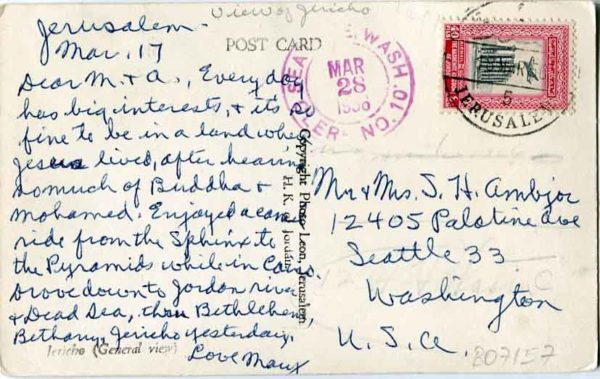 View of Jericho
Jerusalem.
Mar. 17
POST CARD
Dear M. & A., Every day
has big interests, & it's so
fine to be in a land where
Jesus lived, after hearing
so much of Buddha &
Mohamed. Enjoyed a camel
ride from the Sphinx to
the Pyramids while in Cairo.
Drove down to Jordan river
& Dead Sea, thru Bethlehem,
Bethany, Jericho yesterday.
Love Mary
Jericho (General view)
Copyright Photo Leon, Jerusalem
H. K. Jordan
WASH
MAR
28
NO. 10
5
JERUSALEM
Mr & Mrs. S. H. Ambjor
12405 Palatine Ave
Seattle 33
Washington
U. S. A.
807157